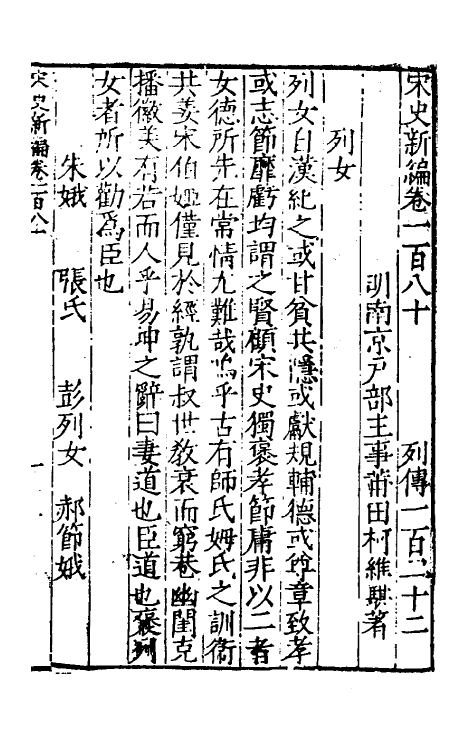 宋史新編卷一百八十　列傳一百二十二
明南京戶部主事莆田柯維騏著
列女
列女自漢紀之或甘貧共隱或獻規輔德或銓章致孝
或志節靡虧均謂之賢顧宋史獨褒孝節庸非以二者
女德所先在常情尤難哉嗚乎古有師氏姆氏之訓衛
共姜宋伯姬僅見於經孰謂叔世教衰而窮巷幽閨克
播徽美有若而人乎易坤之辭曰妻道也臣道也褒列
女者所以勸爲臣也
朱娥　張氏　彭列女　郝節娥
宋史新編卷一百八十　一